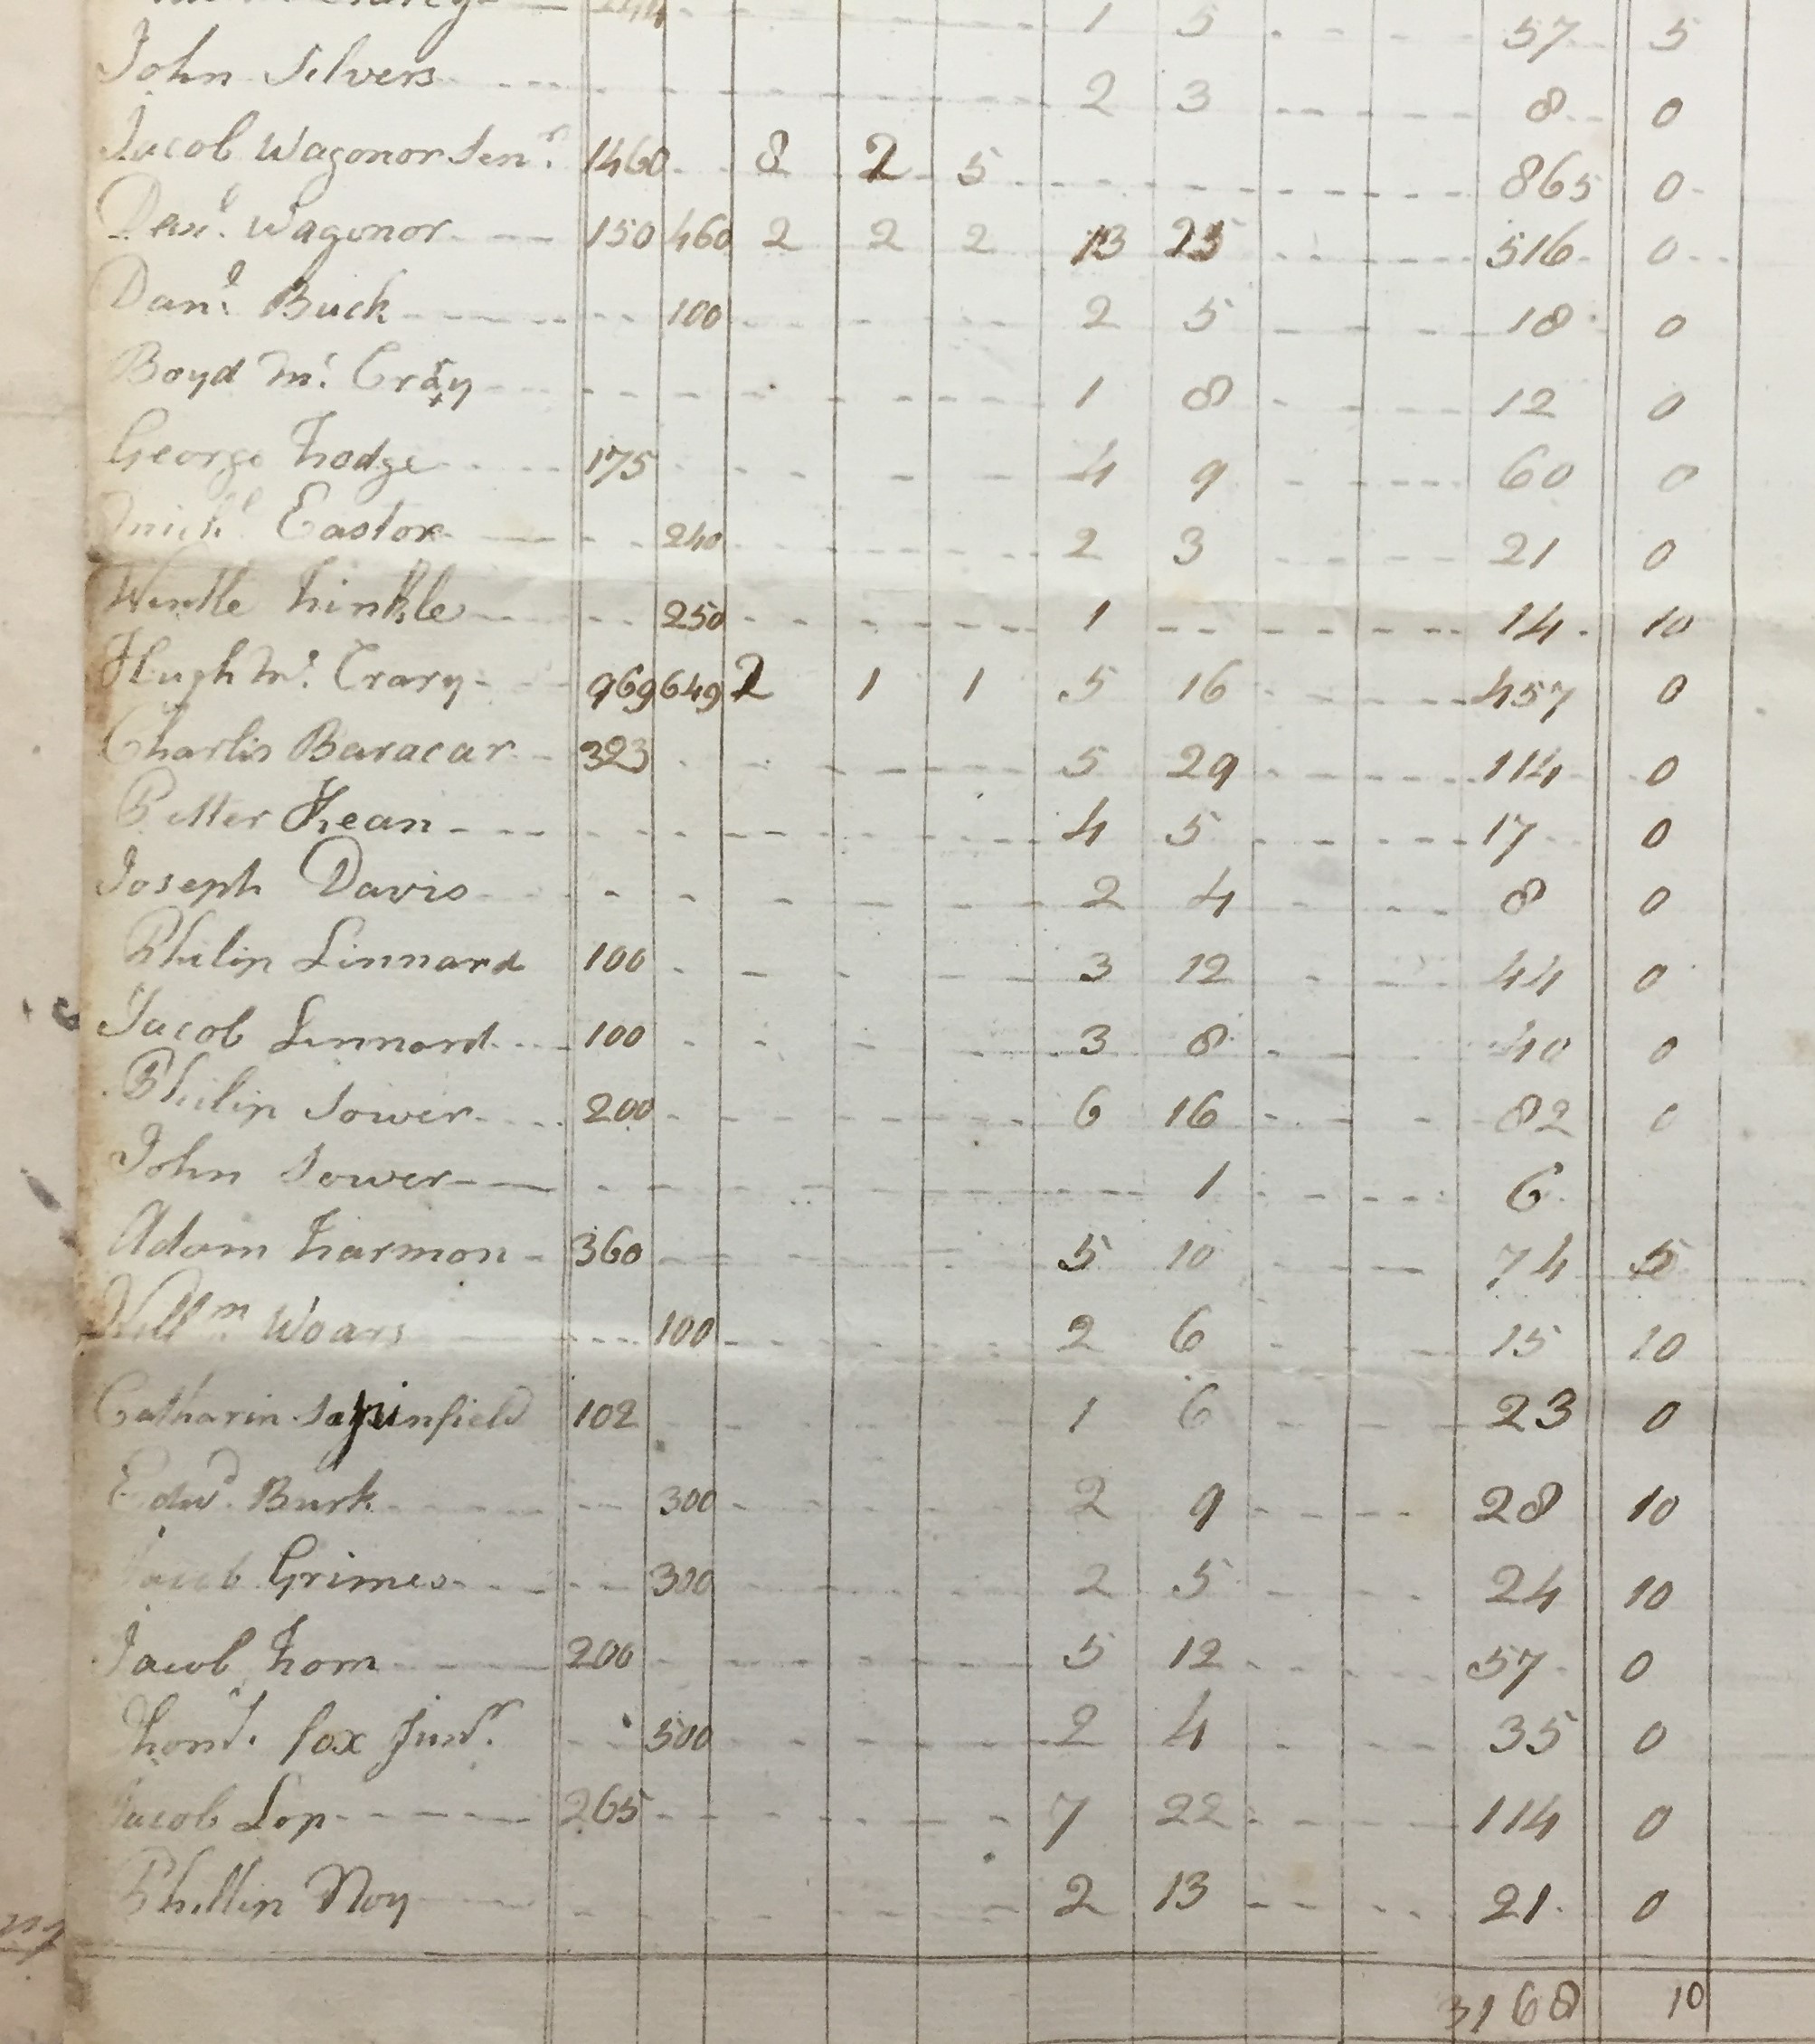 244 1 5 57 5
John Silvers 2 3 8 0
Jacob Wagonor Senr. 1460 8 2 5 865 0
Danl. Wagonor 150 460 2 2 2 13 25 516 0
Danl. Buck 100 2 5 18 0
Boyd Mc. Crary 1 8 12 0
George Hodge 175 4 9 60 0
Michl. Eastor 240 2 3 21 0
Wintle Hinkle 250 1 14 10
Hugh Mc. Crary 969 649 2 1 1 5 16 457 0
Charlis Baracar 323 5 29 114 0
Petter Hean 4 5 17 0
Joseph Davis 2 4 8 0
Philip Linnard 100 3 12 44 0
Jacob Linnard 100 3 8 40 0
Philip Sower 200 6 16 82 0
John Sower 1 6
Adam Harmon 360 5 10 74 5
Willm. Woars 100 2 6 15 10
Catharin 102 1 6 23 0
Edwd. Burk 300 2 9 28 10
Jacob Grimes 300 2 5 24 10
Jacob Hom 200 5 12 57 0
Thoms. fox Junr. 500 2 4 35 0
Jacob Lop 265 7 22 114 0
Phillip Noy 2 13 21 0
3168 10